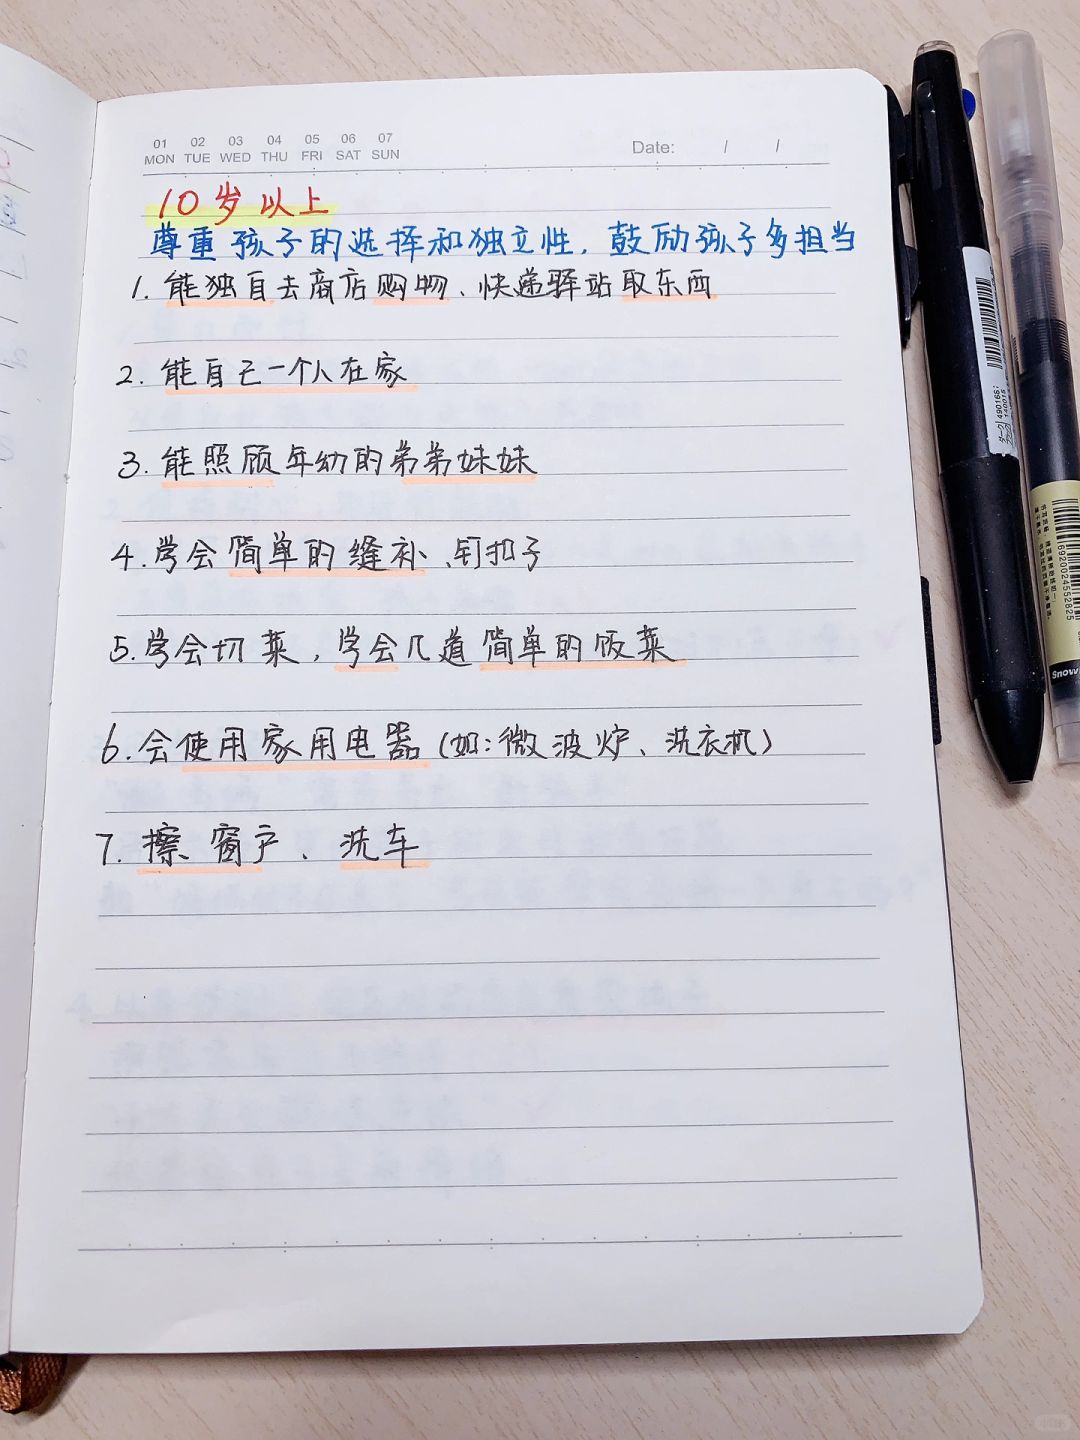 01 02 03 04 05 06 07
MON TUE WED THU FRI SAT SUN
Date: / /
10岁以上
尊重孩子的选择和独立性，鼓励孩子多担当
1. 能独自去商店购物、快递驿站取东西
2. 能自己一个人在家
3. 能照顾年幼的弟弟妹妹
4. 学会简单的缝补、钉扣子
5. 学会切菜，学会几道简单的饭菜
6. 会使用家用电器（如：微波炉、洗衣机）
7. 擦窗户、洗车
490166
140015
6920024552825
Snow